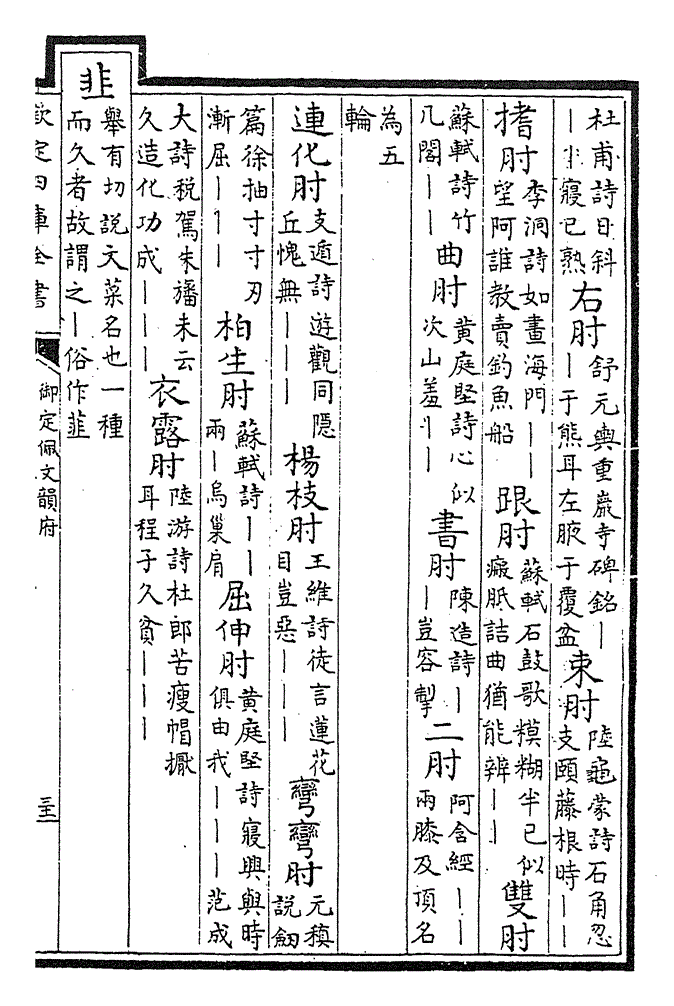 杜甫詩日斜｜半寢已熟右肘舒元輿重巖寺碑銘｜｜于熊耳左腋于覆盆束肘陸龜蒙詩石角忍支頤藤根時｜｜
搘肘李洞詩如畫海門｜｜望阿誰教賣釣魚船跟肘蘇軾石鼓歌糢糊半已似瘢胝詰曲猶能辨｜｜雙肘
蘇軾詩竹几閣｜｜曲肘黄庭堅詩心似次山羞｜｜書肘陳造詩｜｜豈容掣二肘阿含經｜｜兩膝及頂名
為五輪
連化肘支遁詩遊觀同隠丘愧無｜｜｜楊枝肘王維詩徒言蓮花目豈惡｜｜｜彎彎肘元稹説劔
篇徐抽寸寸刃漸屈｜｜｜柏生肘蘇軾詩｜｜兩｜烏巢肩屈伸肘黄庭堅詩寢興與時俱由我｜｜｜范成
大詩税駕朱旛未云久造化功成｜｜｜衣露肘陸游詩杜郎苦瘦帽擫耳程子久貧｜｜｜
韭舉有切説文菜名也一種而久者故謂之｜俗作韮
欽定四庫全書 御定佩文韻府